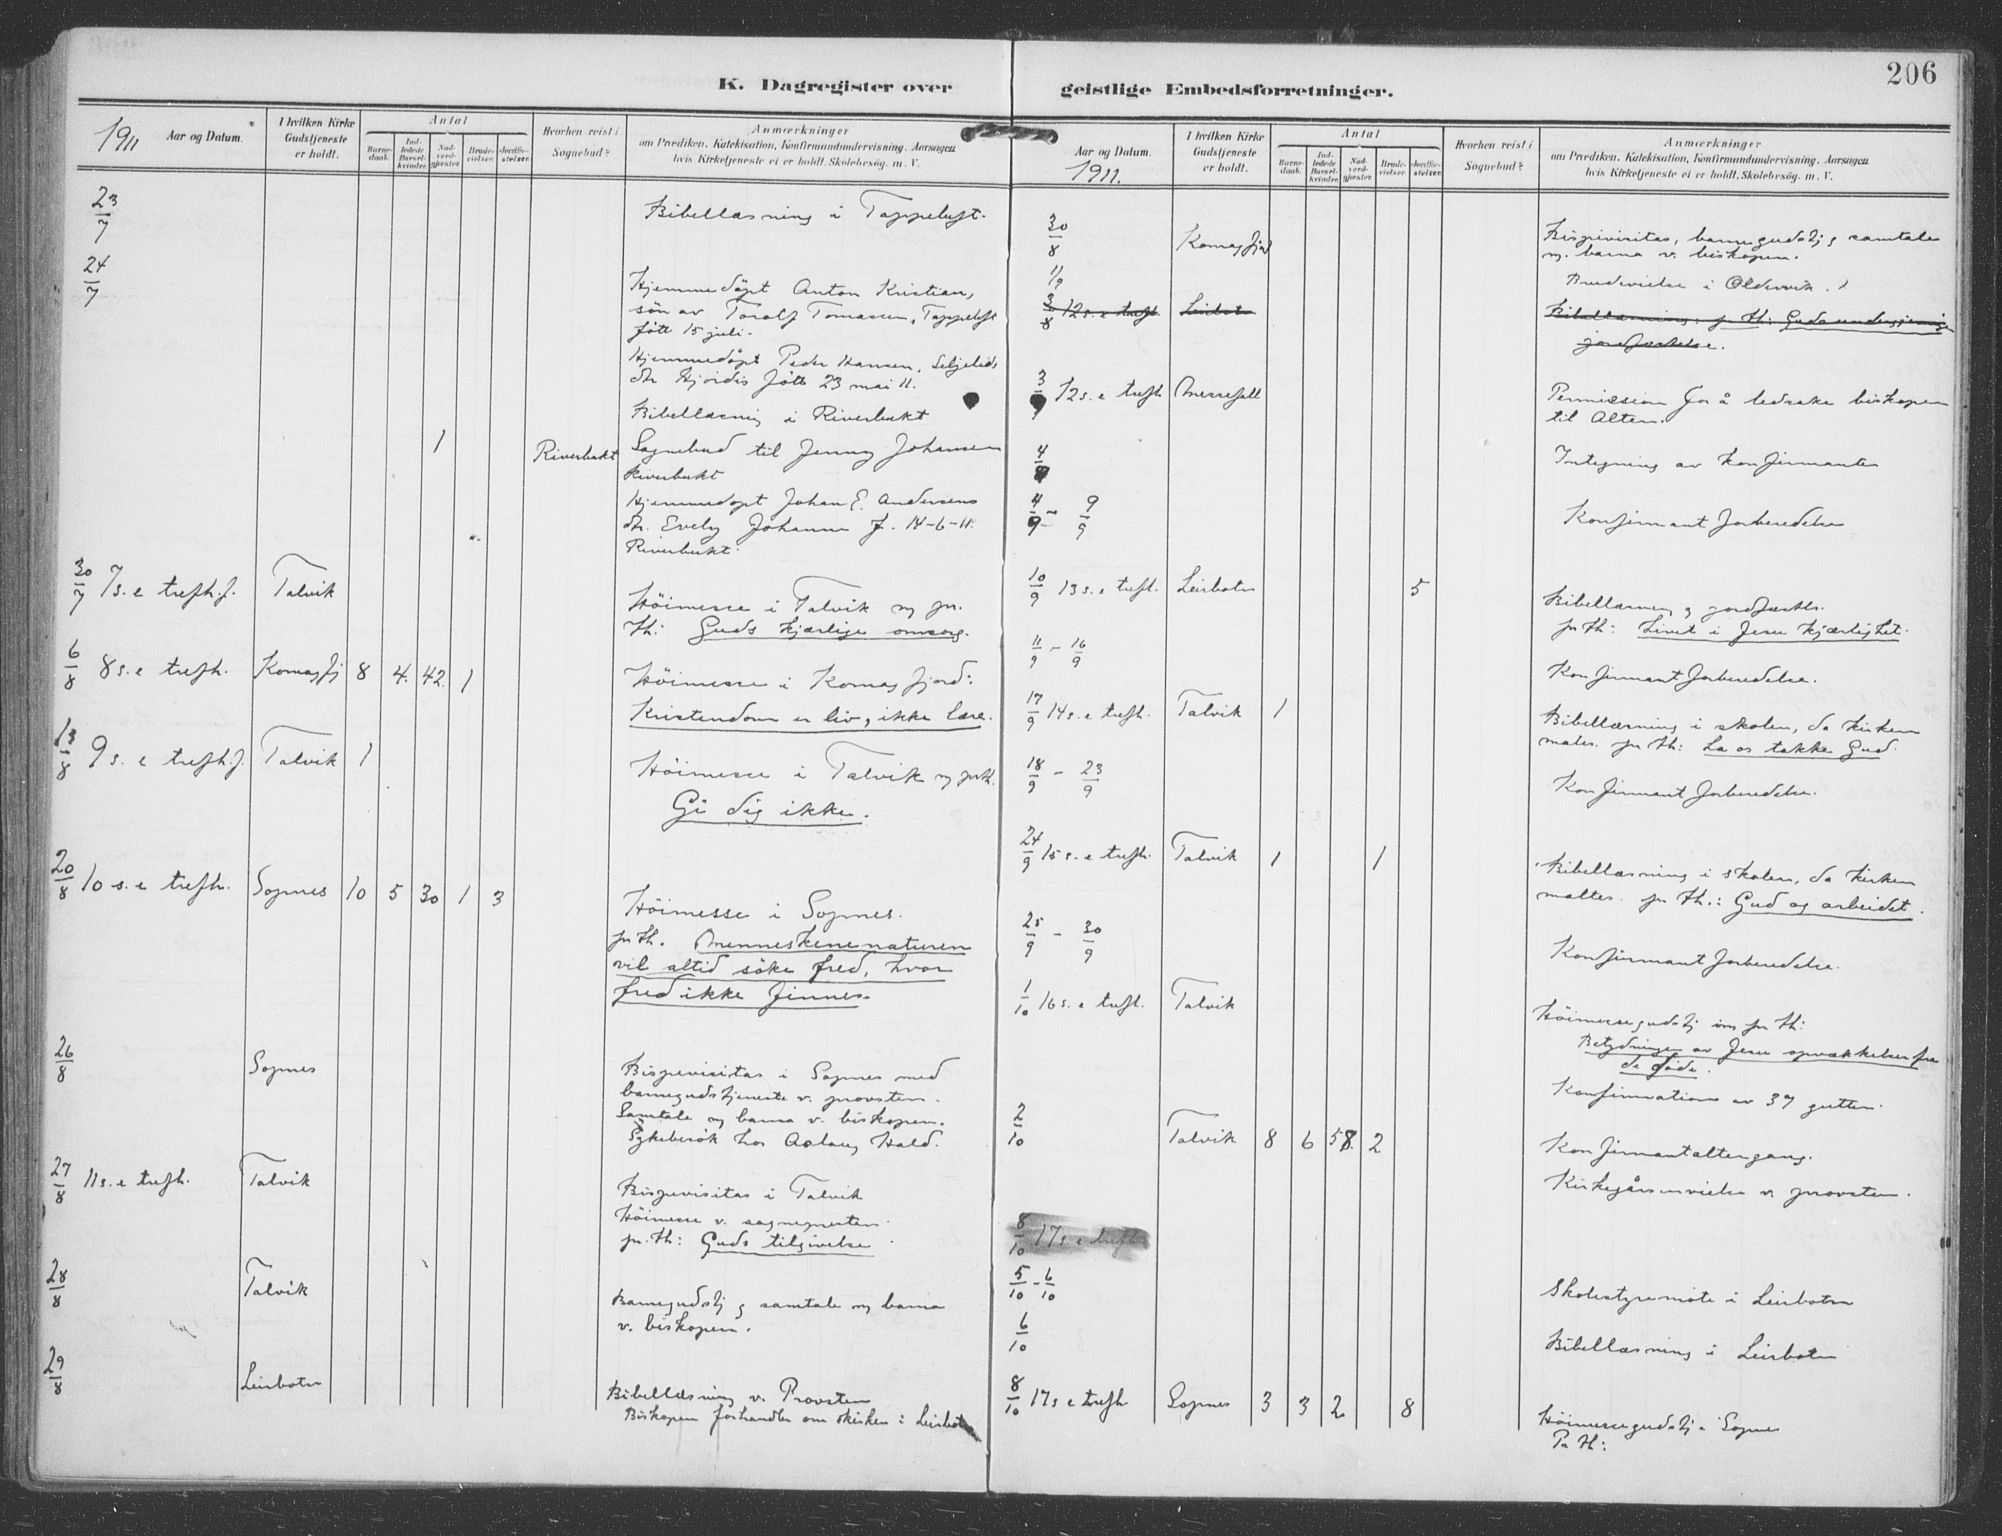 206
K. Dagregister over
1911 Aar og Datum.
I hvilken Kirke Gudstjeneste er holdt.
Antal
Barnedaab.
Indledede Barselkvinder.
Nadverdgjester.
Brudevielser.
Jordfæstelser.
Hvorhen reist i Sognebud?
Anmærkninger
om Prædiken, Katekisation, Konfirmandundervisning, Aarsagen
hvis Kirketjeneste ei er holdt, Skolebesøg. m. V.
23/7 Bibellæsning i Tappeluft.
24/7 Hjemmedöpt Anton Kristian,
sön av Toralf Tomassen, Tappeluft
født 15 juli.
Hjemmedöpt Peder Hansen,
dtr Hjördis født 23 mai 11.
Bibellæsning i Riverbukt
1 Riverbukt Sognebud til Jenny Johansen
Riverbukt
Hjemmedöpt Johan E. Andersens
dtr. Evely Johanne f. 14-6-11.
Riverbukt.
30/7 7 s. e trefh.f. Talvik Höimesse i Talvik og pr.
th: Guds kjærlige omsorg.
6/8 8 s. e trefh. Komagfj 8 4. 42. 1 Höimesse i Komagfjord:
Kristendom er liv, ikke lære.
13/8 9 s. e trefh.f. Talvik 1 Höimesse i Talvik og pr th.
Gi dig ikke.
20/8 10 s. e trefh. Sopnes 10 5 30 1 3 Höimesse i Sopnes.
pr th. Menneskene naturen
vil altid söke fred, hvor
fred ikke finnes.
26/8 Sopnes Bispevisitas i Sopnes med
barnegudstjeneste v. provsten.
Samtale og barna v. biskopen.
Sykebesök hos Aslaug Hald.
27/8 11 s. e trefh. Talvik Bispevisitas i Talvik
Höimesse v. sognepresten
pr. th: Guds tilgivelse.
28/8 Talvik Barnegudstj og samtale og barna
v. biskopen.
29/8 Leirbotn Bibellæsning v. Provsten
Biskopen forhandler om kirken i Leirbotn
geistlige Embedsforretninger.
Aar og Datum. 1911.
I hvilken Kirke Gudstjeneste er holdt.
Antal
Barnedaab.
Indledede Barselkvinder.
Nadverdgjester.
Brudevielser.
Jordfæstelser.
Hvorhen reist i Sognebud?
Anmærkninger
om Prædiken, Katekisation, Konfirmandundervisning, Aarsagen
hvis Kirketjeneste ei er holdt, Skolebesøg. m. V.
30/8 Komagfjord Bispevisitas, barnegudstj og samtale
m. barna v. biskopen.
1/9 Brudevielse i Oldervik. 1
3/8 12 s. e trefh Leirbotn Bibellæsning: pr th: Guds
jordfæstelse.
3/9 12 s. e trefh Messefall Permission for å ledsake biskopen
til Alten.
4/9 Integning av konfirmanter
4/9 - 9/9 Konfirmantforberedelse
10/9 13 s. e trefh. Leirbotn 5 Bibellæsning og jordfæstels.
pr th: Livet i Jesu kjærlighet.
11/9 - 16/9 Konfirmantforberedelse.
17/9 14 s. e trefh. Talvik 1 Bibellæsning i skolen, da kirken
males. pr th: La os takke Gud.
18/9 - 23/9 Konfirmantforberedelse.
24/9 15 s. e trefh. Talvik 1 1 Bibellæsning i skolen, da kirken
maltes. pr th.: Gud og arbeidet.
25/9 - 30/9 Konfirmantforberedelse.
1/10 16 s. e trefh. Talvik Höimessegudstj pr th:
Betydningen av Jesu opvækkelse fra
de döde.
Konfirmation av 37 gutter.
2/10 Talvik 8 6 58. 2 Konfirmantaltergang.
Kirkegårsinvielse v. provsten.
8/10 17 s. e trefh
5/10 - 6/10 Skolestyremöte i Leirbotn
6/10 Bibellæsning i Leirbotn
8/10 17 s e trefh Sopnes 3 3 2 8 Höimessegudstj i Sopnes
Pr th: